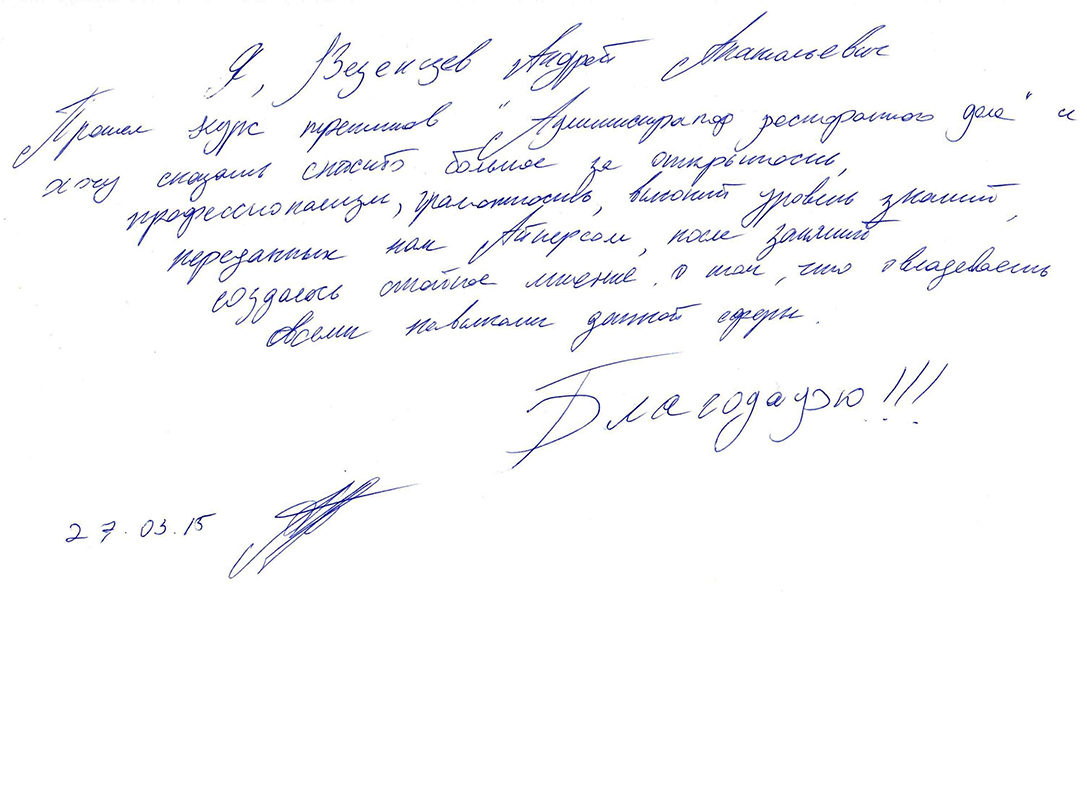 Я, Везенцев Андрей Анатольевич
Прошел курс тренингов "Администратор ресторанного дела" и
хочу сказать спасибо большое за открытость,
профессионализм, грамотность, высокий уровень знаний,
переданных нам, после занятий
создалось стойкое мнение о том, что овладеваешь
всеми навыками данной сферы.
Благодарю!!!
27.03.15